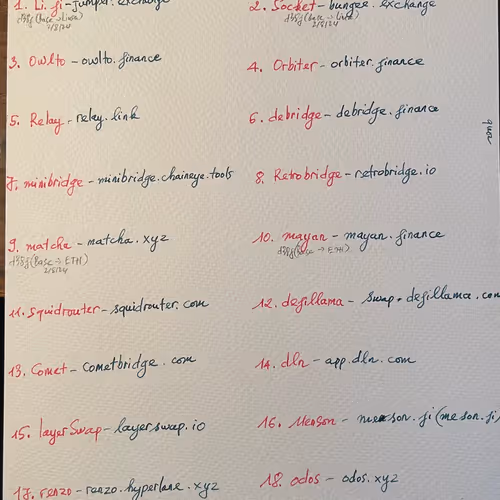 1. Li.fi - jumper.exchange
2. Socket - bungee.exchange
(base → linea)
2/8/24
(base → linea)
2/8/24
3. Owlto - owlto.finance
4. Orbiter - orbiter.finance
5. Relay - relay.link
6. debridge - debridge.finance
7. minibridge - minibridge.chaineye.tools
8. Retrobridge - retrobridge.io
9. matcha - matcha.xyz
10. mayan - mayan.finance
(base → ETH)
2/8/24
(base → ETH)
11. Squidrouter - squidrouter.com
12. defillama - swap.defillama.com
13. Comet - cometbridge.com
14. dln - app.dln.com
15. layerSwap - layerswap.io
16. Menson - meson.fi (meson.fi)
17. renzo - renzo.hyperlane.xyz
18. odos - odos.xyz